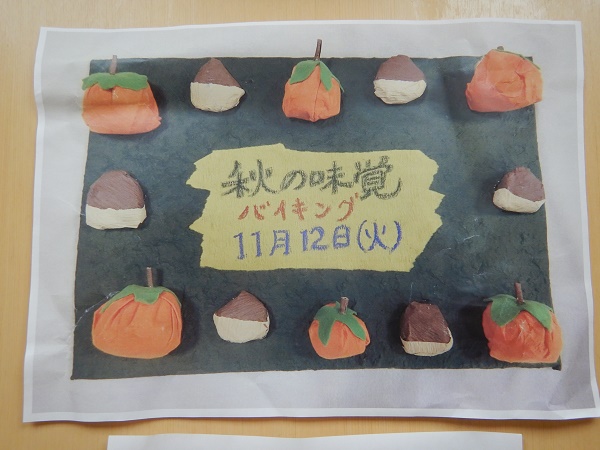 秋の味覚
バイキング
11月12日(火)